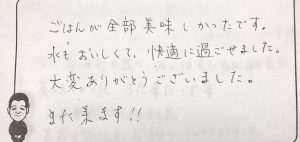 ごはんが全部美味しかったです。
水もおいしくて、快適に過ごせました。
大変ありがとうございました。
また来ます!!